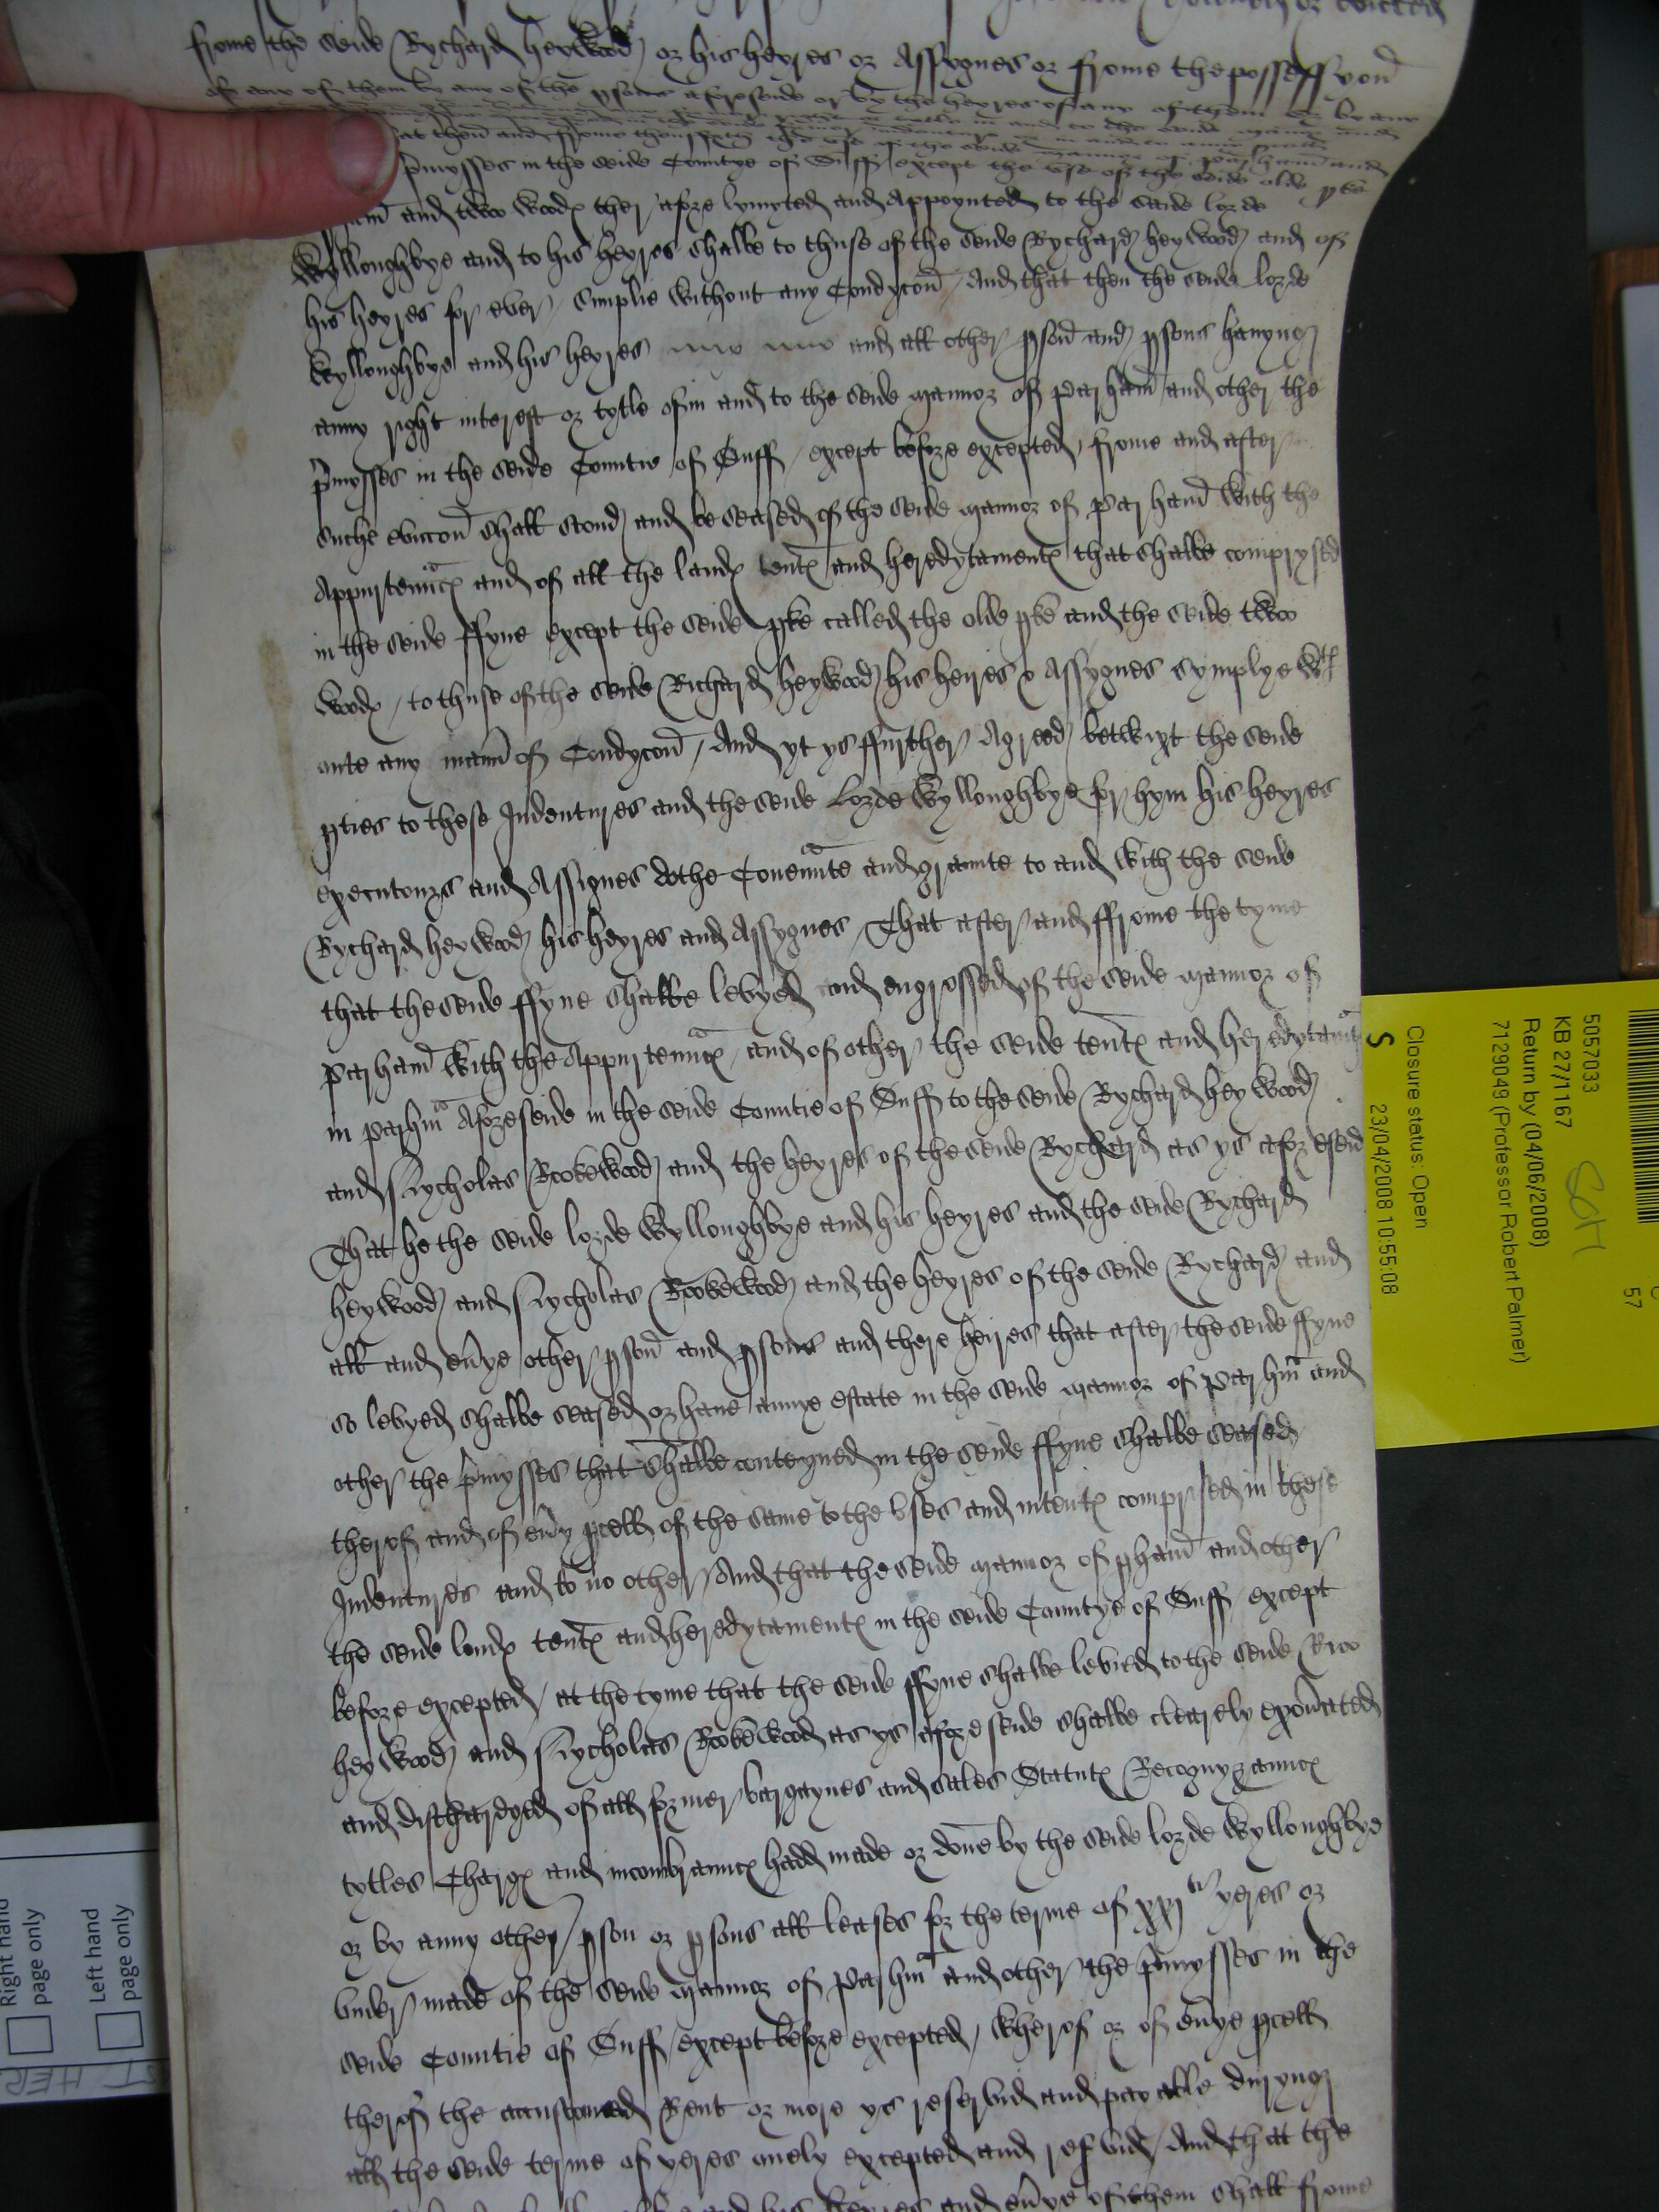 frome the seide Rychard heywood or his heyres or Assygnes or frome the possessyon
of any of them by any of the psons aforeseide or by the heyres of any of them or by any
at then and frome thensforth
pmysses in the seide Countye of Suff except the use of the seide olde pke
and two woodꝭ ther afore lymyted and Appoynted to the seide lorde
Wylloughbye and to his heyres shalbe to thuse of the seide Rychard heywood and of
his heyres for ever simplie without any Condycon / And that then the seide lorde
Wylloughbye and his heyres and all other pson and psons havyng
anny right interest or tytle of in and to the seide mannor of Parham and other the
pmysses in the seide Countie of Suff / except before excepted / frome and after
suche eviccon shall stond and be seased of the seide mannor of Parham with the
Appurtennꝭ and of all the landꝭ tentꝭ and heredytamentꝭ that shalbe comprysed
in the seide ffyne except the seide pke called the olde pke and the seide two
woodꝭ / to thuse of the seide Richard heywood his heires & Assygnes symplye wth
oute any mann of Condycon / And yt ys ffurther Agreed betwixt the seide
pties to these Indentures and the seide Lorde Wylloughbye for hym his heyres
executours and Assignes dothe Covennte and graunte to and with the seide
Rychard heywood his heyres and Assygnes / That after and ffrome the tyme
that the seide ffyne shalbe levyed and engrossed of the seide mannor of
Parham with the Appurtennꝭ / and of other the seide tentꝭ and heredytamtꝭ
in Parhm Aforeseide in the seide Countie of Suff to the seide Rychard heywood
and Nycholas Rookewood and the heyres of the seide Rycherd as ys aforeseid
That he the seide lorde Wylloughbye and his heyres and the seide Rychard
heywood and Nycholas Rookewood and the heyres of the seide Rychard and
all and evye other pson and psons and there heires that after the seide ffyne
so levyed shalbe seased or have annye estate in the seide mannor of Parhm and
other the pmysses that shalbe conteyned in the seide ffyne shalbe seased
therof and of evy pcell of the same to the vses and intentꝭ comprised in these
Indentures and to no other / And that the seide mannor of pham and other
the seide londꝭ tentꝭ and heredytamentꝭ in the seide Countye of Suff except
before excepted / at the tyme that the seide ffyne shalbe levied to the seide Ric
heywood and Nycholas Rookewood as ys aforeseide shalbe clearely exonated
and dischardged of all former bargaynes and sales Statutꝭ Recognyzauncꝭ
tytles Chargꝭ and incombrauncꝭ hadd made or done by the seide lorde Wylloughbye
or by anny other pson or psons all leases for the terme of xxjti yeres or
vnder made of the seide mannor of Parhm and other the pmysses in the
seide Countie of Suff / except before excepted / wherof or of evye pcell
therof the accustomed Rent or more ys reservid and payable duryng
all the seide terme of yeres onely excepted and resvid / And that the
and his heyres and evye of them shall frome
5057033
KB 27/1167
Return by (04/06/2008)
7129049 (Professor Robert Palmer)
Closure status: Open
S
23/04/2008 10:55:08
57
Right hand
page only
Left hand
page only